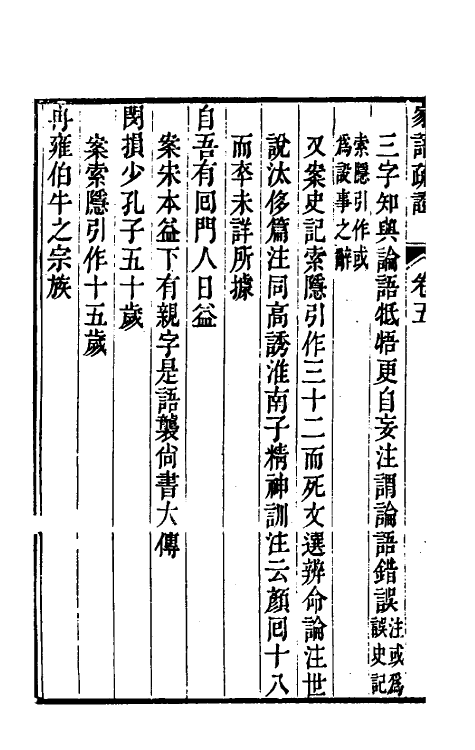 家語疏證 卷五
三字知與論語牴牾更自妄注謂論語錯誤注或爲誤史記
索隱引作或爲設事之辭
又案史記索隱引作三十二而死文選辨命論注世
說汰侈篇注同高誘淮南子精神訓注云顏回十八
而卒未詳所據
自吾有回門人日益
案宋本益下有親字是語襲尙書大傳
閔損少孔子五十歲
案索隱引作十五歲
冉雍伯牛之宗族